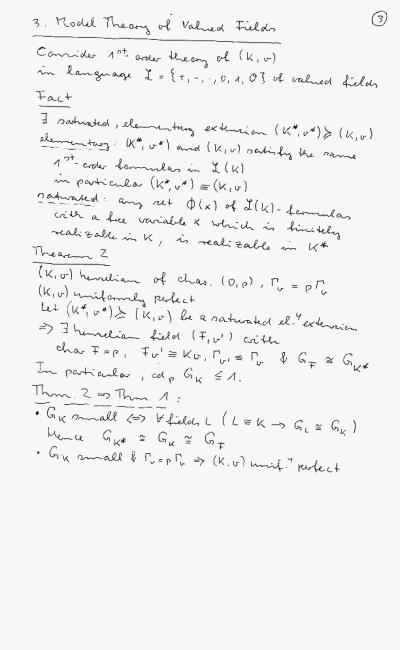 3
3. Model Theory of Valued Fields
Consider 1st-order theory of (K, v)
in language ℒ = {+, -, ·, 0, 1, O} of valued fields
Fact
∃ saturated, elementary extension (K*, v*) ≽ (K, v)
elementary: (K*, v*) and (K, v) satisfy the same
1st-order formulas in ℒ(K)
in particular (K*, v*) ≡ (K, v)
saturated: any set Φ(x) of ℒ(K)-formulas
with a free variable x which is finitely
realizable in K, is realizable in K*
Theorem 2
(K, v) henselian of char. (0, p), Γv = pΓv
(K, v) uniformly perfect
Let (K*, v*) ≽ (K, v) be a saturated el.y extension
⇒ ∃ henselian field (F, v') with
char F = p, Fv' ≡ Kv, Γv' ≡ Γv & G_F ≅ G_K*
In particular, cd_p G_K ≤ 1.
Thm. 2 ⇒ Thm. 1:
• G_K small ⇔ ∀ fields L (L ≡ K → G_L ≅ G_K)
Hence G_K* ≅ G_K ≅ G_F
• G_K small & Γv = pΓv ⇒ (K, v) unif.y perfect